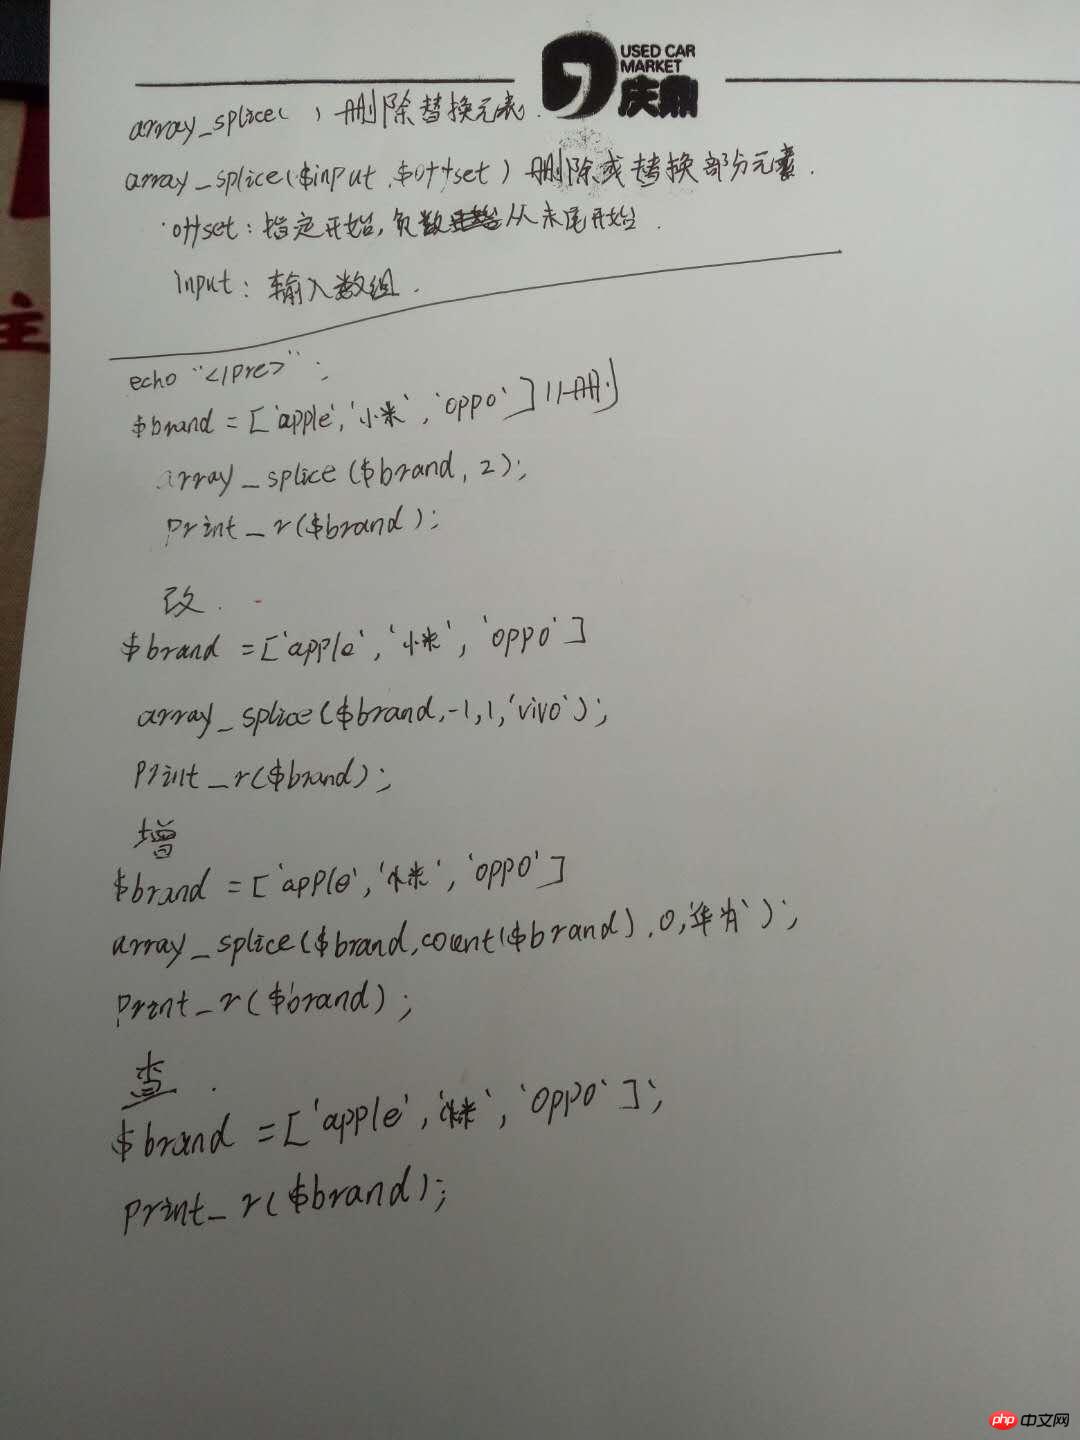 USED CAR
MARKET
庆鼎
array_splice( ) 删除替换元素.
array_splice($input,$offset) 删除或替换部分元素.
offset: 指定开始, 负数 从末尾开始.
Input: 输入数组.
echo "</pre>";
$brand = ['apple','小米','oppo'] //删
array_splice($brand, 2);
Print_r($brand);
改.
$brand = ['apple','小米','oppo']
array_splice($brand,-1,1,'vivo');
Print_r($brand);
增
$brand = ['apple','小米','oppo']
array_splice($brand,count($brand),0,'华为');
Print_r($brand);
查.
$brand = ['apple','小米','oppo'];
Print_r($brand);
php 中文网